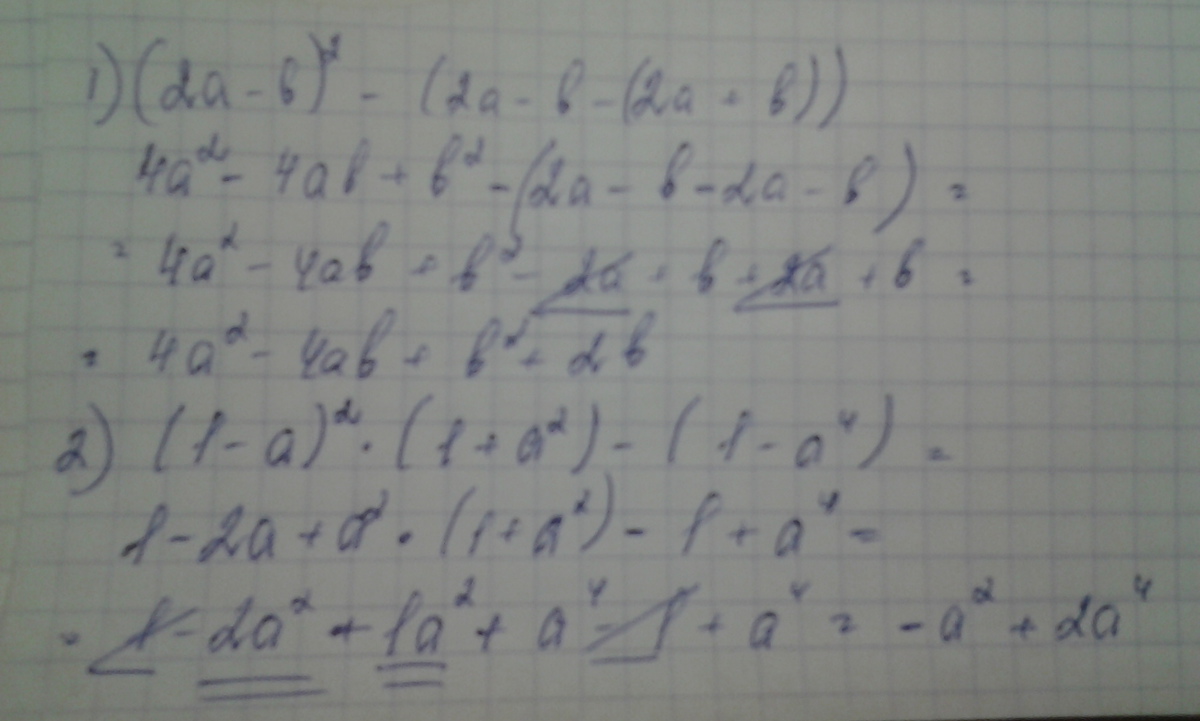 1) (2a - b)² - (2a - b - (2a + b))
4a² - 4ab + b² - (2a - b - 2a - b) =
= 4a² - 4ab + b² - 2a + b + 2a + b =
= 4a² - 4ab + b² + 2b
2) (1 - a)² · (1 + a²) - (1 - a⁴) =
1 - 2a + a² · (1 + a²) - 1 + a⁴ =
= 1 - 2a² + 1a² + a⁴ - 1 + a⁴ = - a² + 2a⁴